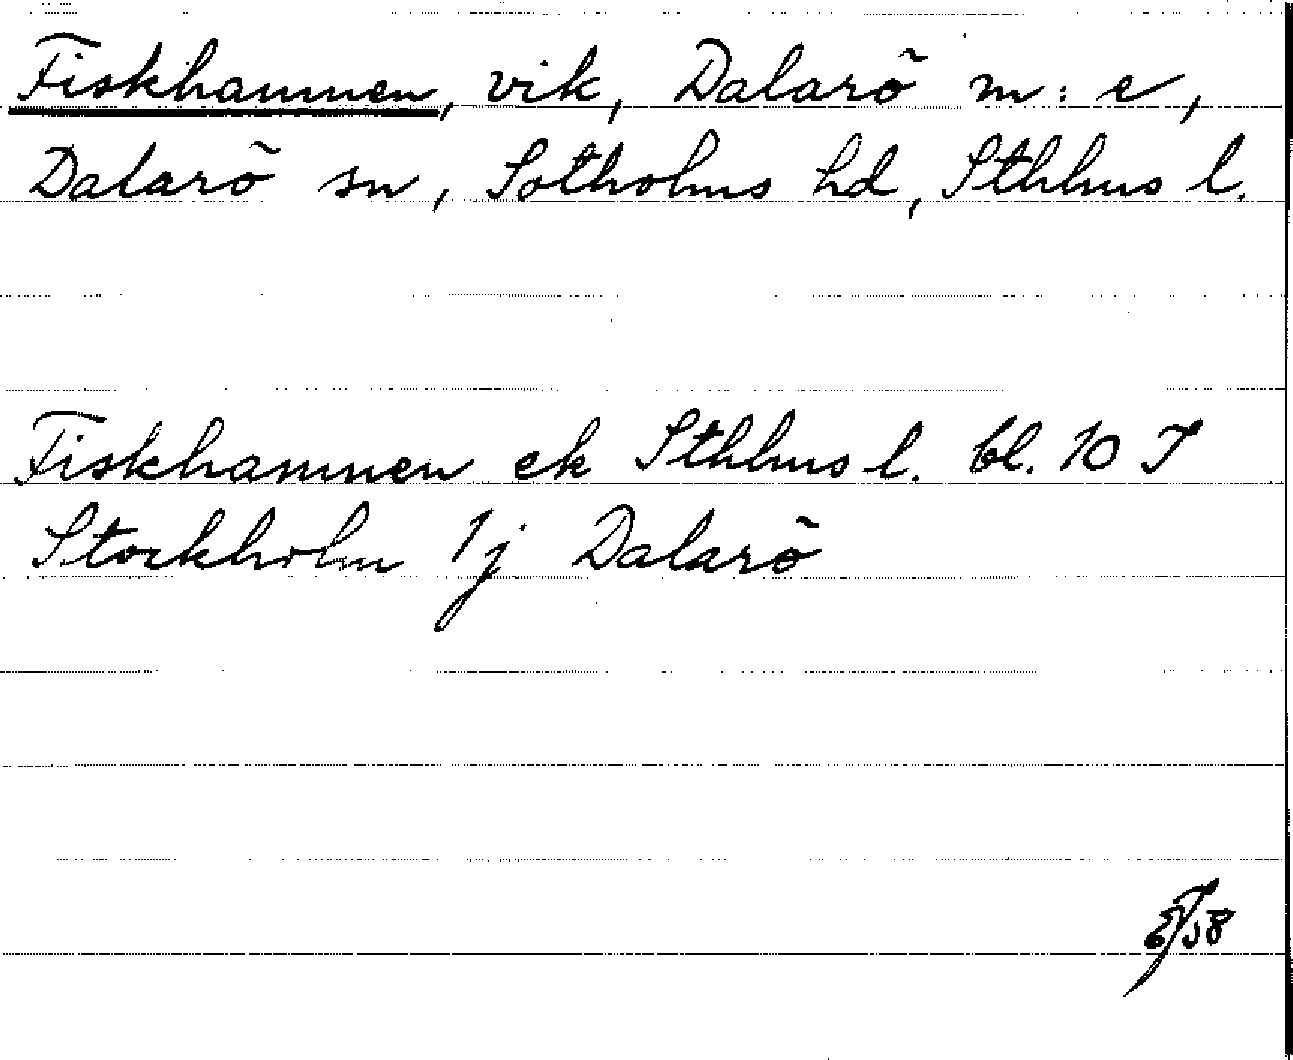 Fiskhamnen, vik, Dalarö m:e,
Dalarö sn, Sotholms hd, Sthlms l.
Fiskhamnen ek Sthlms l. bl. 10 J
Stockholm 1j Dalarö